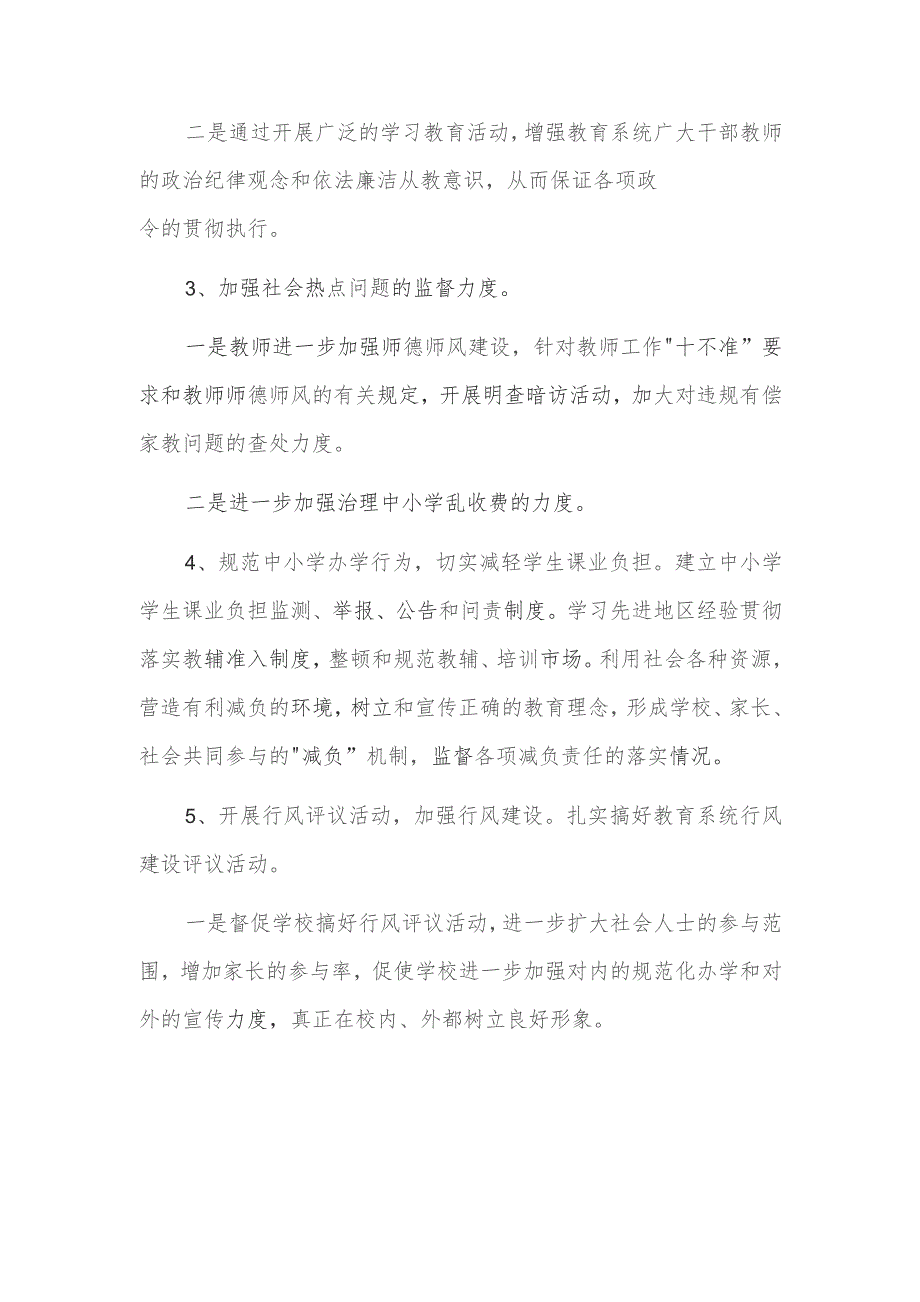 二是通过开展广泛的学习教育活动，增强教育系统广大干部教师
的政治纪律观念和依法廉洁从教意识，从而保证各项政
令的贯彻执行。
3、加强社会热点问题的监督力度。
一是教师进一步加强师德师风建设，针对教师工作"十不准”要
求和教师师德师风的有关规定，开展明查暗访活动，加大对违规有偿
家教问题的查处力度。
二是进一步加强治理中小学乱收费的力度。
4、规范中小学办学行为，切实减轻学生课业负担。建立中小学
学生课业负担监测、举报、公告和问责制度。学习先进地区经验贯彻
落实教辅准入制度，整顿和规范教辅、培训市场。利用社会各种资源，
营造有利减负的环境，树立和宣传正确的教育理念，形成学校、家长、
社会共同参与的"减负”机制，监督各项减负责任的落实情况。
5、开展行风评议活动，加强行风建设。扎实搞好教育系统行风
建设评议活动。
一是督促学校搞好行风评议活动，进一步扩大社会人士的参与范
围，增加家长的参与率，促使学校进一步加强对内的规范化办学和对
外的宣传力度，真正在校内、外都树立良好形象。